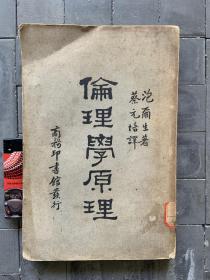 泡爾生著
蔡元培譯
倫理學原理
商務印書館發行